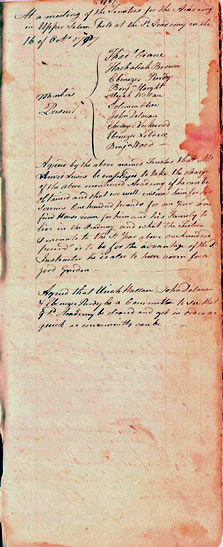 At a meeting of the Trustees for the Academy
in Upper Salem held at the Sd. Academy on the
16 of Octr. 179
Members
Present
Thos. Crane
Hachaliah Brown
Ebenezer Purdy
Benjn. Haight
Uriah Wallace
Solomon Close
John Delavan
Ebenezer Lobdell
Benjn. Wood
Agreed by the above named Trustees that Mr.
Amzi Lewis be to take the charge
of the above mentioned Academy if he can be
obtained and that we will allow him for his
Service One hundred pounds for one Year and
find House room for him and his Family to
live in the Academy, and what the
to the Sd. Dr. above one hundred
pounds is to be for the advantage of the Sd.
Instructor he is also to have room for a
good Garden
Agreed that Uriah Wallace, John Delavan
& Ebenezer Purdy be a Committee to see that
the Sd. Academy be cleared and got in order as
quick as conveniently can be